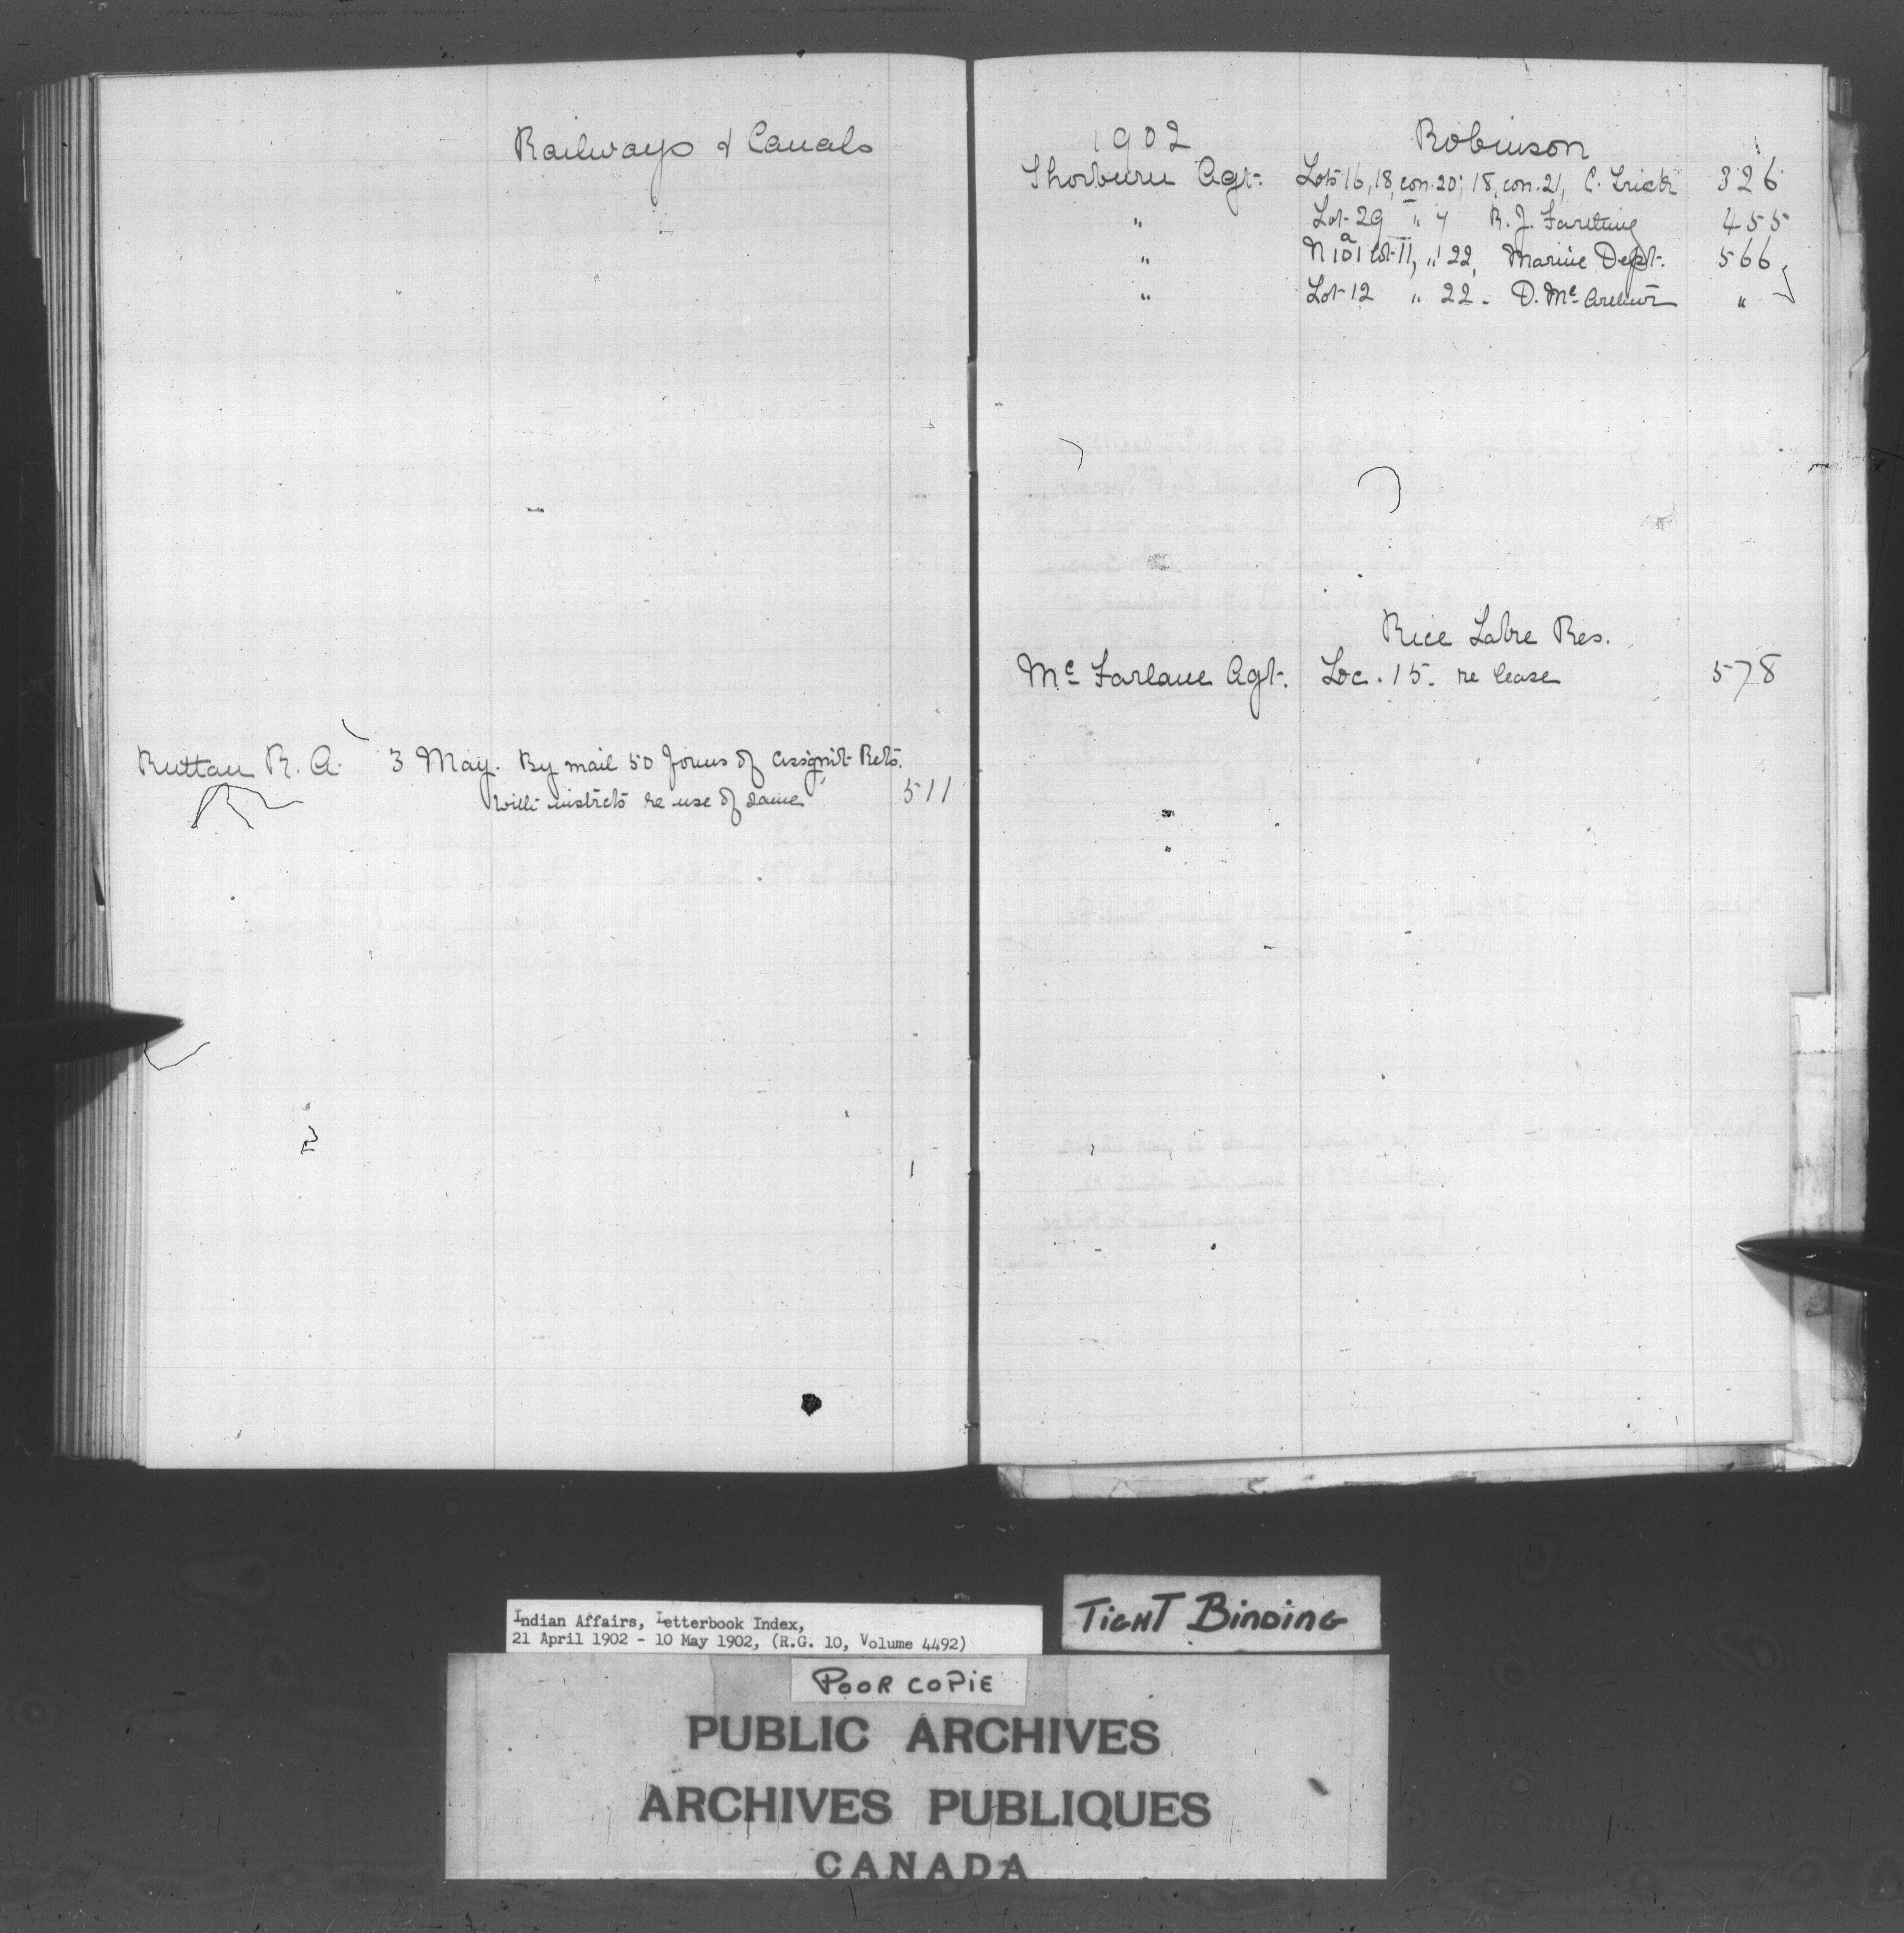 Railways & Canals
Ruttan R. A. 3 May. By mail 50 forms of assignt Rets.
with instrcts re use of same 511
1902 Robinson
Thorburn Agt. Lots 16, 18, con. 20; 18, con. 21, C. Trick 326
" Lot 29 " 7 R. J. Farthing 455
" Lot 11, " 22, Marine Dept. 566
" Lot 12 " 22. D. McArthur "
Rice Lake Res.
McFarlane Agt. Loc. 15. re lease 578
Indian Affairs, Letterbook Index,
21 April 1902 - 10 May 1902, (R.G. 10, Volume 4492)
TIGHT BINDING
POOR COPIE
PUBLIC ARCHIVES
ARCHIVES PUBLIQUES
CANADA